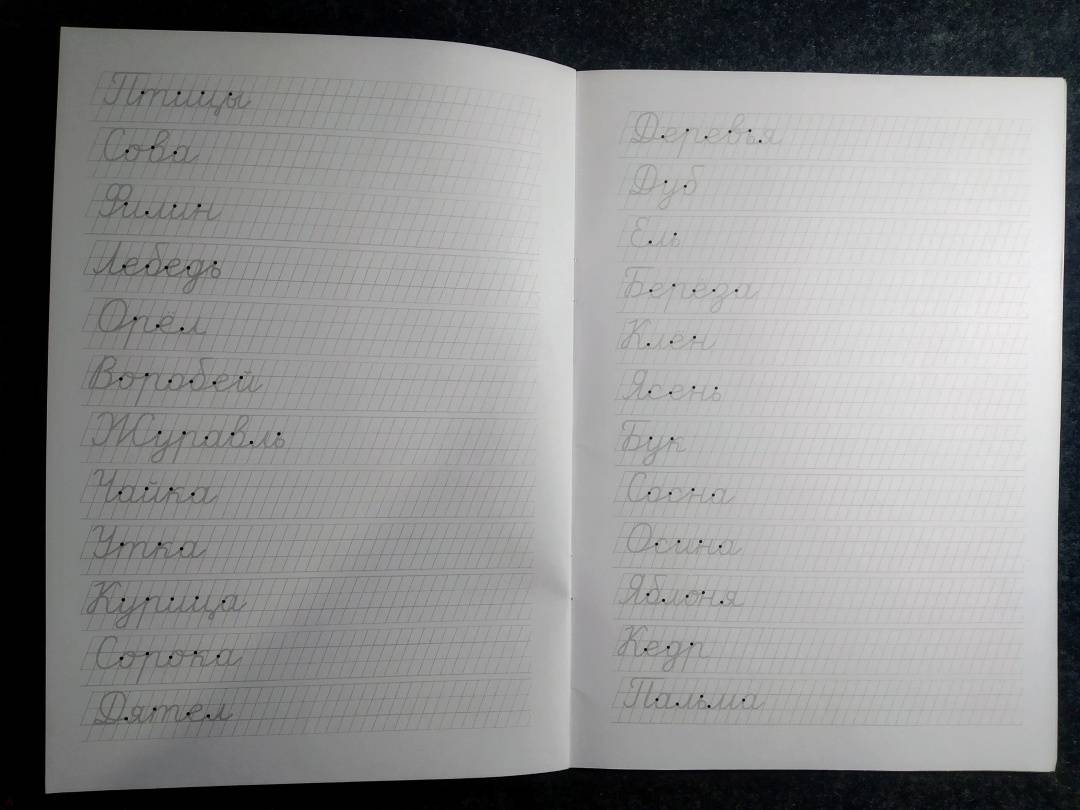 Птицы
Сова
Филин
Лебедь
Орёл
Воробей
Журавль
Чайка
Утка
Курица
Сорока
Дятел
Деревья
Дуб
Ель
Берёза
Клен
Ясень
Бук
Сосна
Осина
Яблоня
Кедр
Пальма